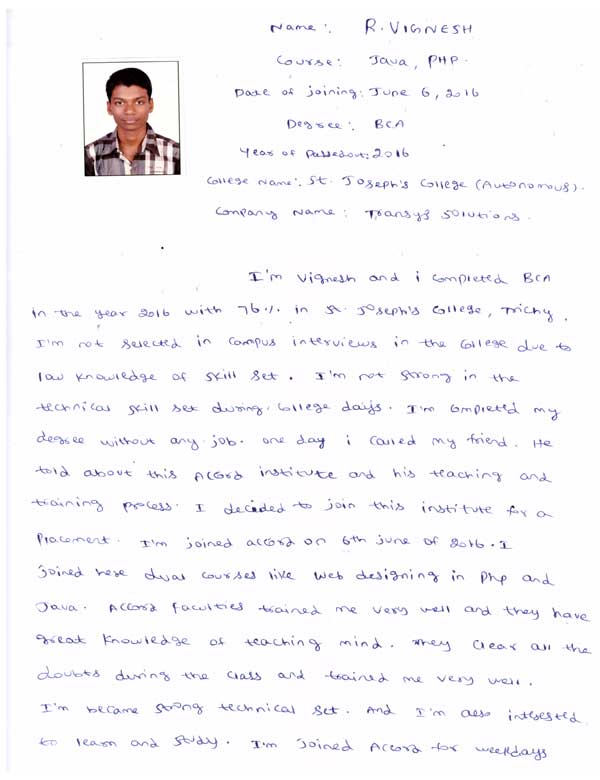 Name: R. VIGNESH
Course: Java, PHP.
Date of joining: June 6, 2016
Degree: BCA
Year of Passedout: 2016
College Name: St. Joseph's College (Autonomous).
Company Name: Transys Solutions.
I'm Vignesh and i completed BCA
in the year 2016 with 76% in St. Joseph's College, Trichy.
I'm not selected in campus interviews in the College due to
low knowledge of skill set. I'm not strong in the
technical skill set during college days. I'm completed my
degree without any job. one day i called my friend. He
told about this Accord institute and his teaching and
training process. I decided to join this institute for a
Placement. I'm joined accord on 6th june of 2016. I
joined here dual courses like web designing in Php and
Java. Accord faculties trained me very well and they have
great knowledge of teaching mind. They clear all the
doubts during the class and trained me very well.
I'm became strong technical set. And I'm also interested
to learn and study. I'm joined Accord for weekdays